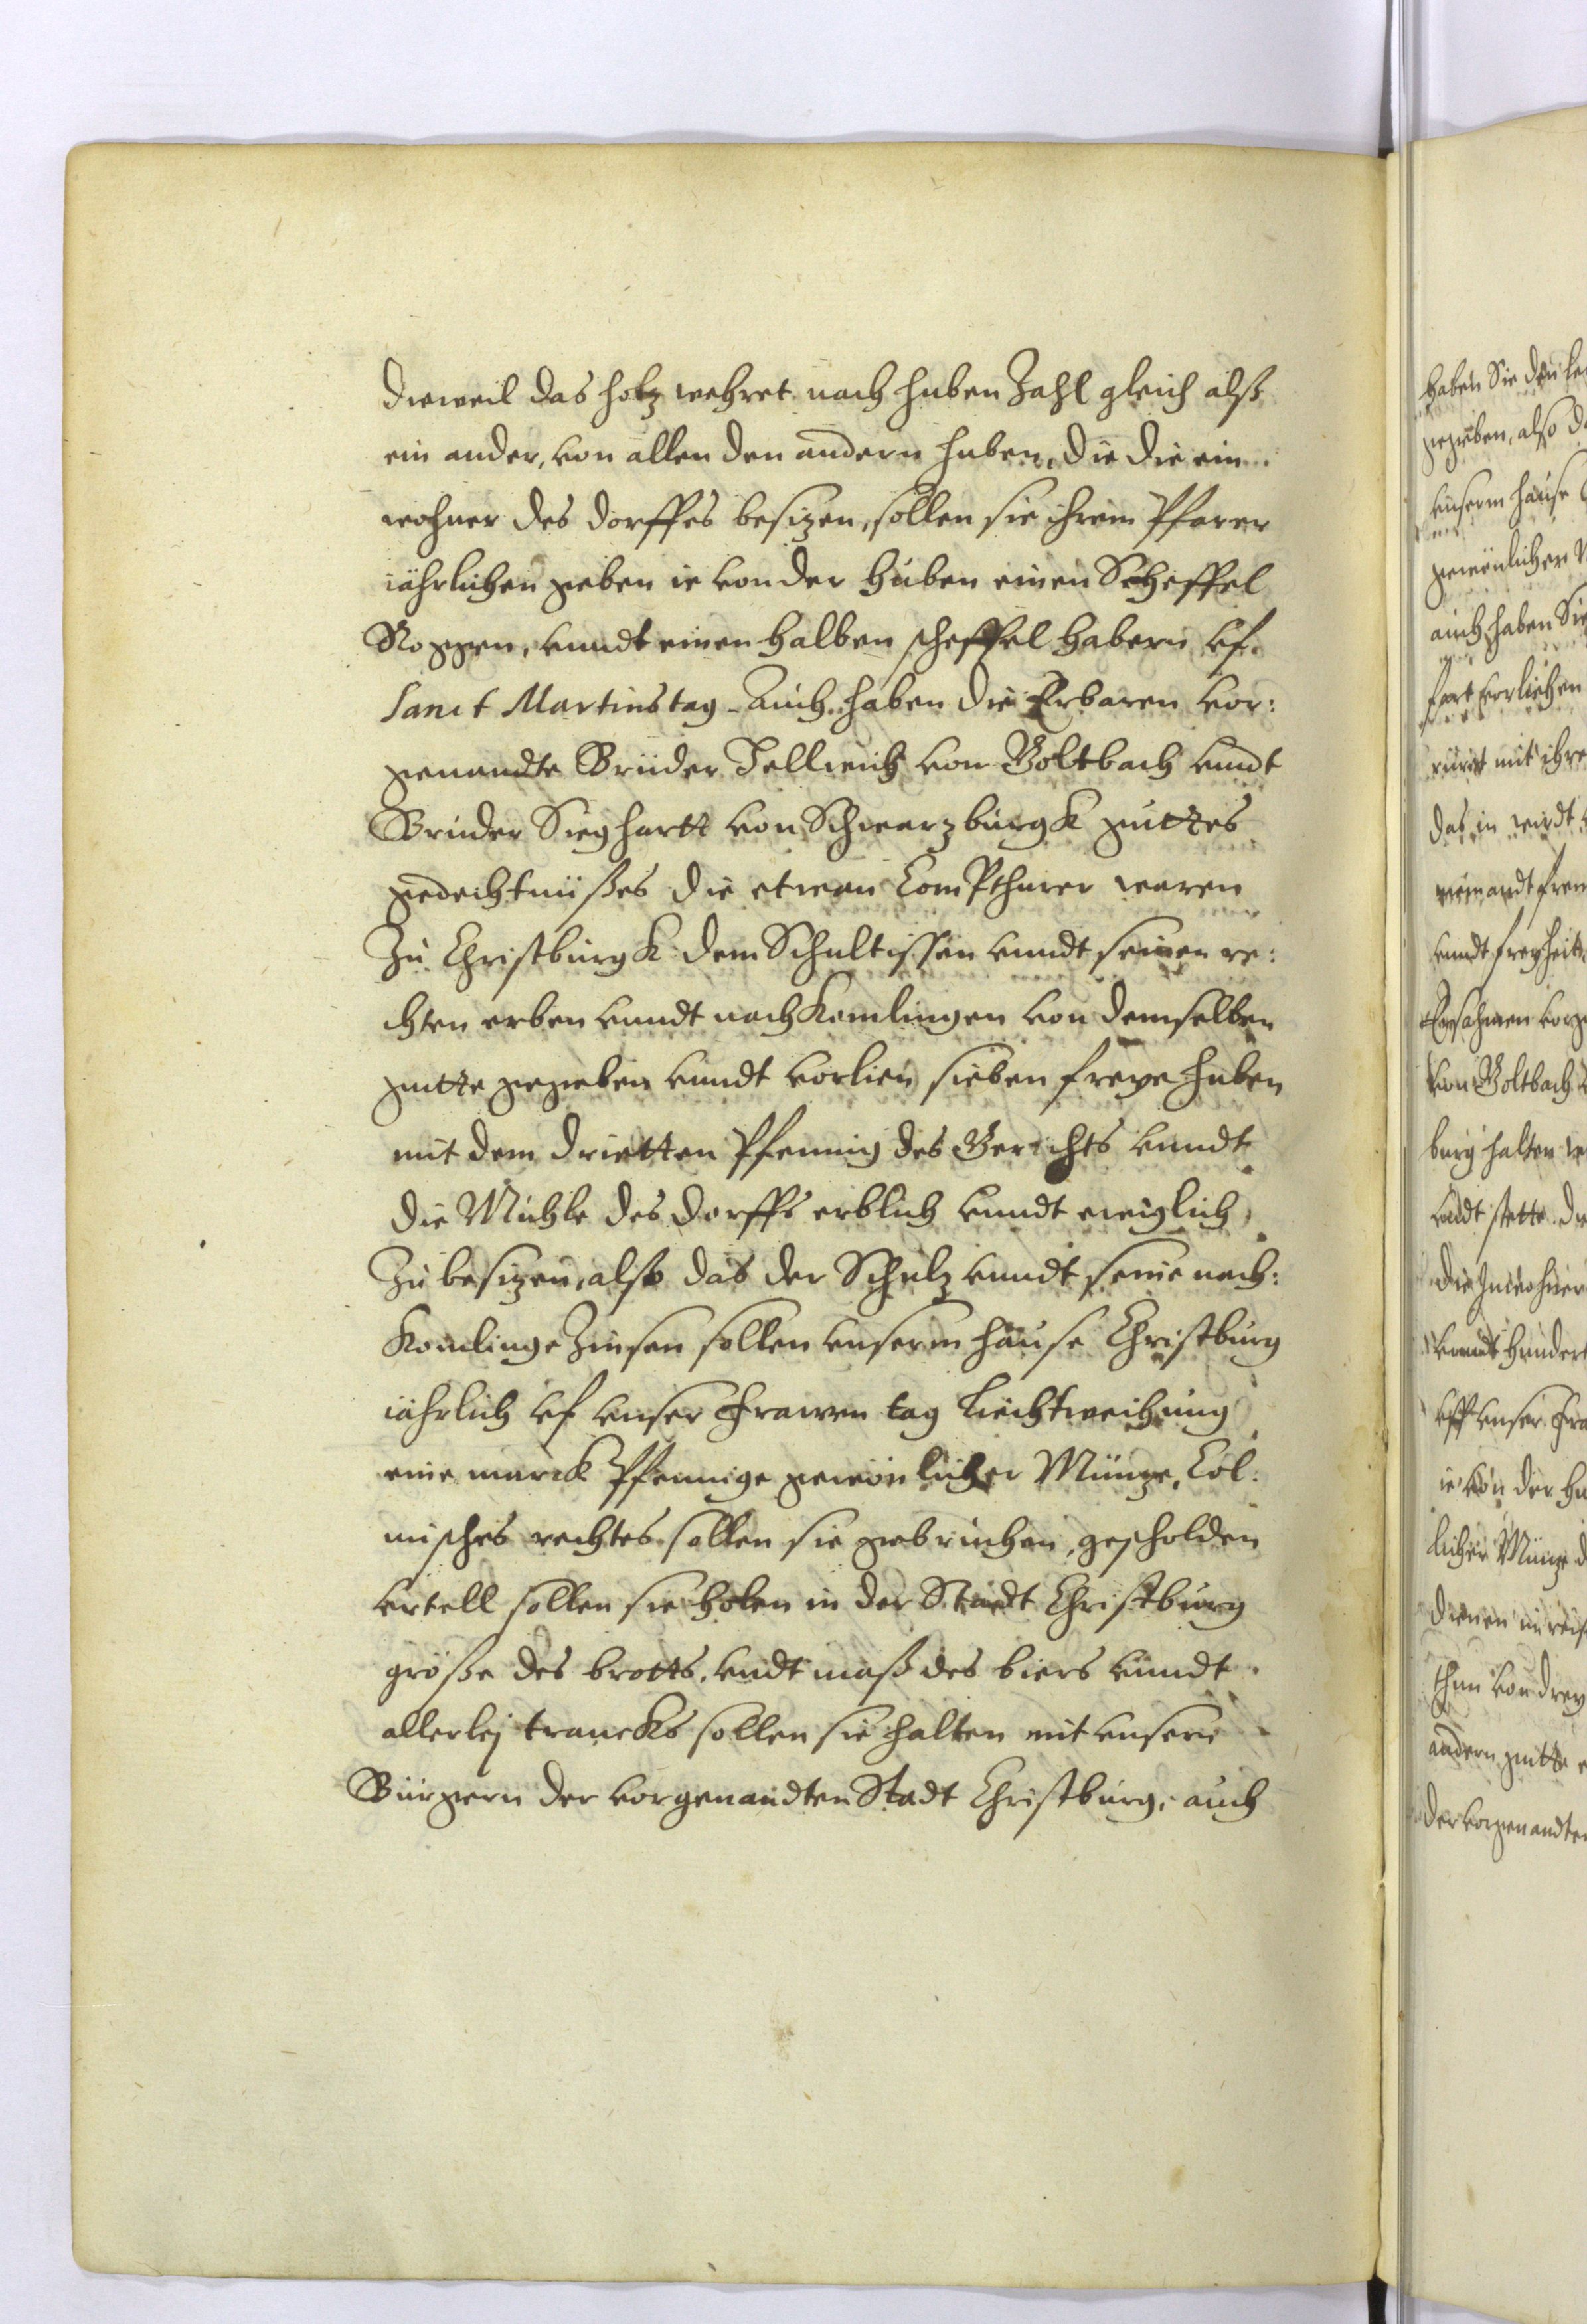 dieweil das holtz wehret nach huben Zahl gleich alß
ein ander, von allen den andern huben, die die ein
wohner des dorffes besizen, sollen sie ihrem Pfarer
iährlichen geben ie von der huben einen Scheffel
Roggen, vnndt einen halben scheffel habern vf
Sanct Martins tag. Auch haben die Erbaren vor:
genandte Brüder von Goltbach vnndt
Bruder Sieghartt von Schwarzburgk guttes
gedechtnüßes die etwan Compthurer waren
Zu Christburgk dem Schultissen vnndt seinen re:
chten erben vnndt nachkomlingen von demselben
gutte gegeben vnndt vorlien sieben freye huben
mit dem drietten Pfennig des Gerichts vnndt
die Mühle des dorffs erblich vnndt ewiglich
Zu besizen, also das der Schulz vnndt seine nach:
komlinge Zinsen sollen vnserm hause Christburg
iährlich vf vnser Frawen tag Liechtweihung
eine marck Pfennige gewönlicher Münze, Col:
misches rechtes sollen sie gebrüchen, gescholden
vrtell sollen sie holen in der Stadt Christburg
größe des brotts, vndt maß des biers vnndt
allerlej trancks sollen sie halten mit vnsern
Bürgern der vorgenandten Stadt Christburg, auch
haben Sie den
gegeben, also
vnserm hause
gewönlicher
auch haben Sie
mit ihre
das in wirdt
niemandt
vnndt freyheit
Ersahmen
von Goltbach
burg halten
vndt stette
die Inwohner
vnndt hundert
vff vnser
ie von der
licher Münze
dienen
thun von drey
andern gutte
der vorgenandten